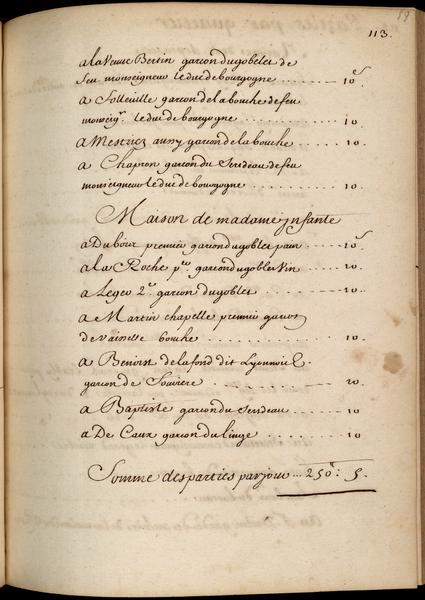 59
113.
a la Veuve Bertin garcon du gobelet de
feu monseigneur le duc de bourgogne ........ 10 s
a Solleville garcon de la bouche de feu
monseigr. le duc de bourgogne ........ 10
a Mestriez aussy garcon de la bouche ..... 10
a Chapron garcon du Serdeau de feu
monseigneur le duc de bourgogne ........ 10
Maison de madame jnfante
a Dubour premier garcon du goblet pain ..... 10 s
a la Roche pr. garcon du goblet Vin ..... 10
a Leger 2e. garcon du goblet ........ 10
a Martin chapelle premier garcon
de vaisselle bouche ........ 10
a Benoist de la fond dit Lyonnois
garcon de ........ 20
a Baptiste garcon du Serdeau ...... 10
a De Caux garcon du linge ...... 10
Somme des parties par jour ... 250 : 5.